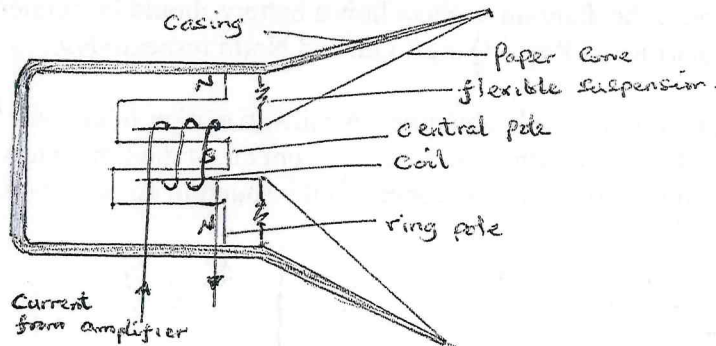 Casing
Paper Cone
flexible suspension
N
Central pole
S
Coil
N
ring pole
Current
from amplifier